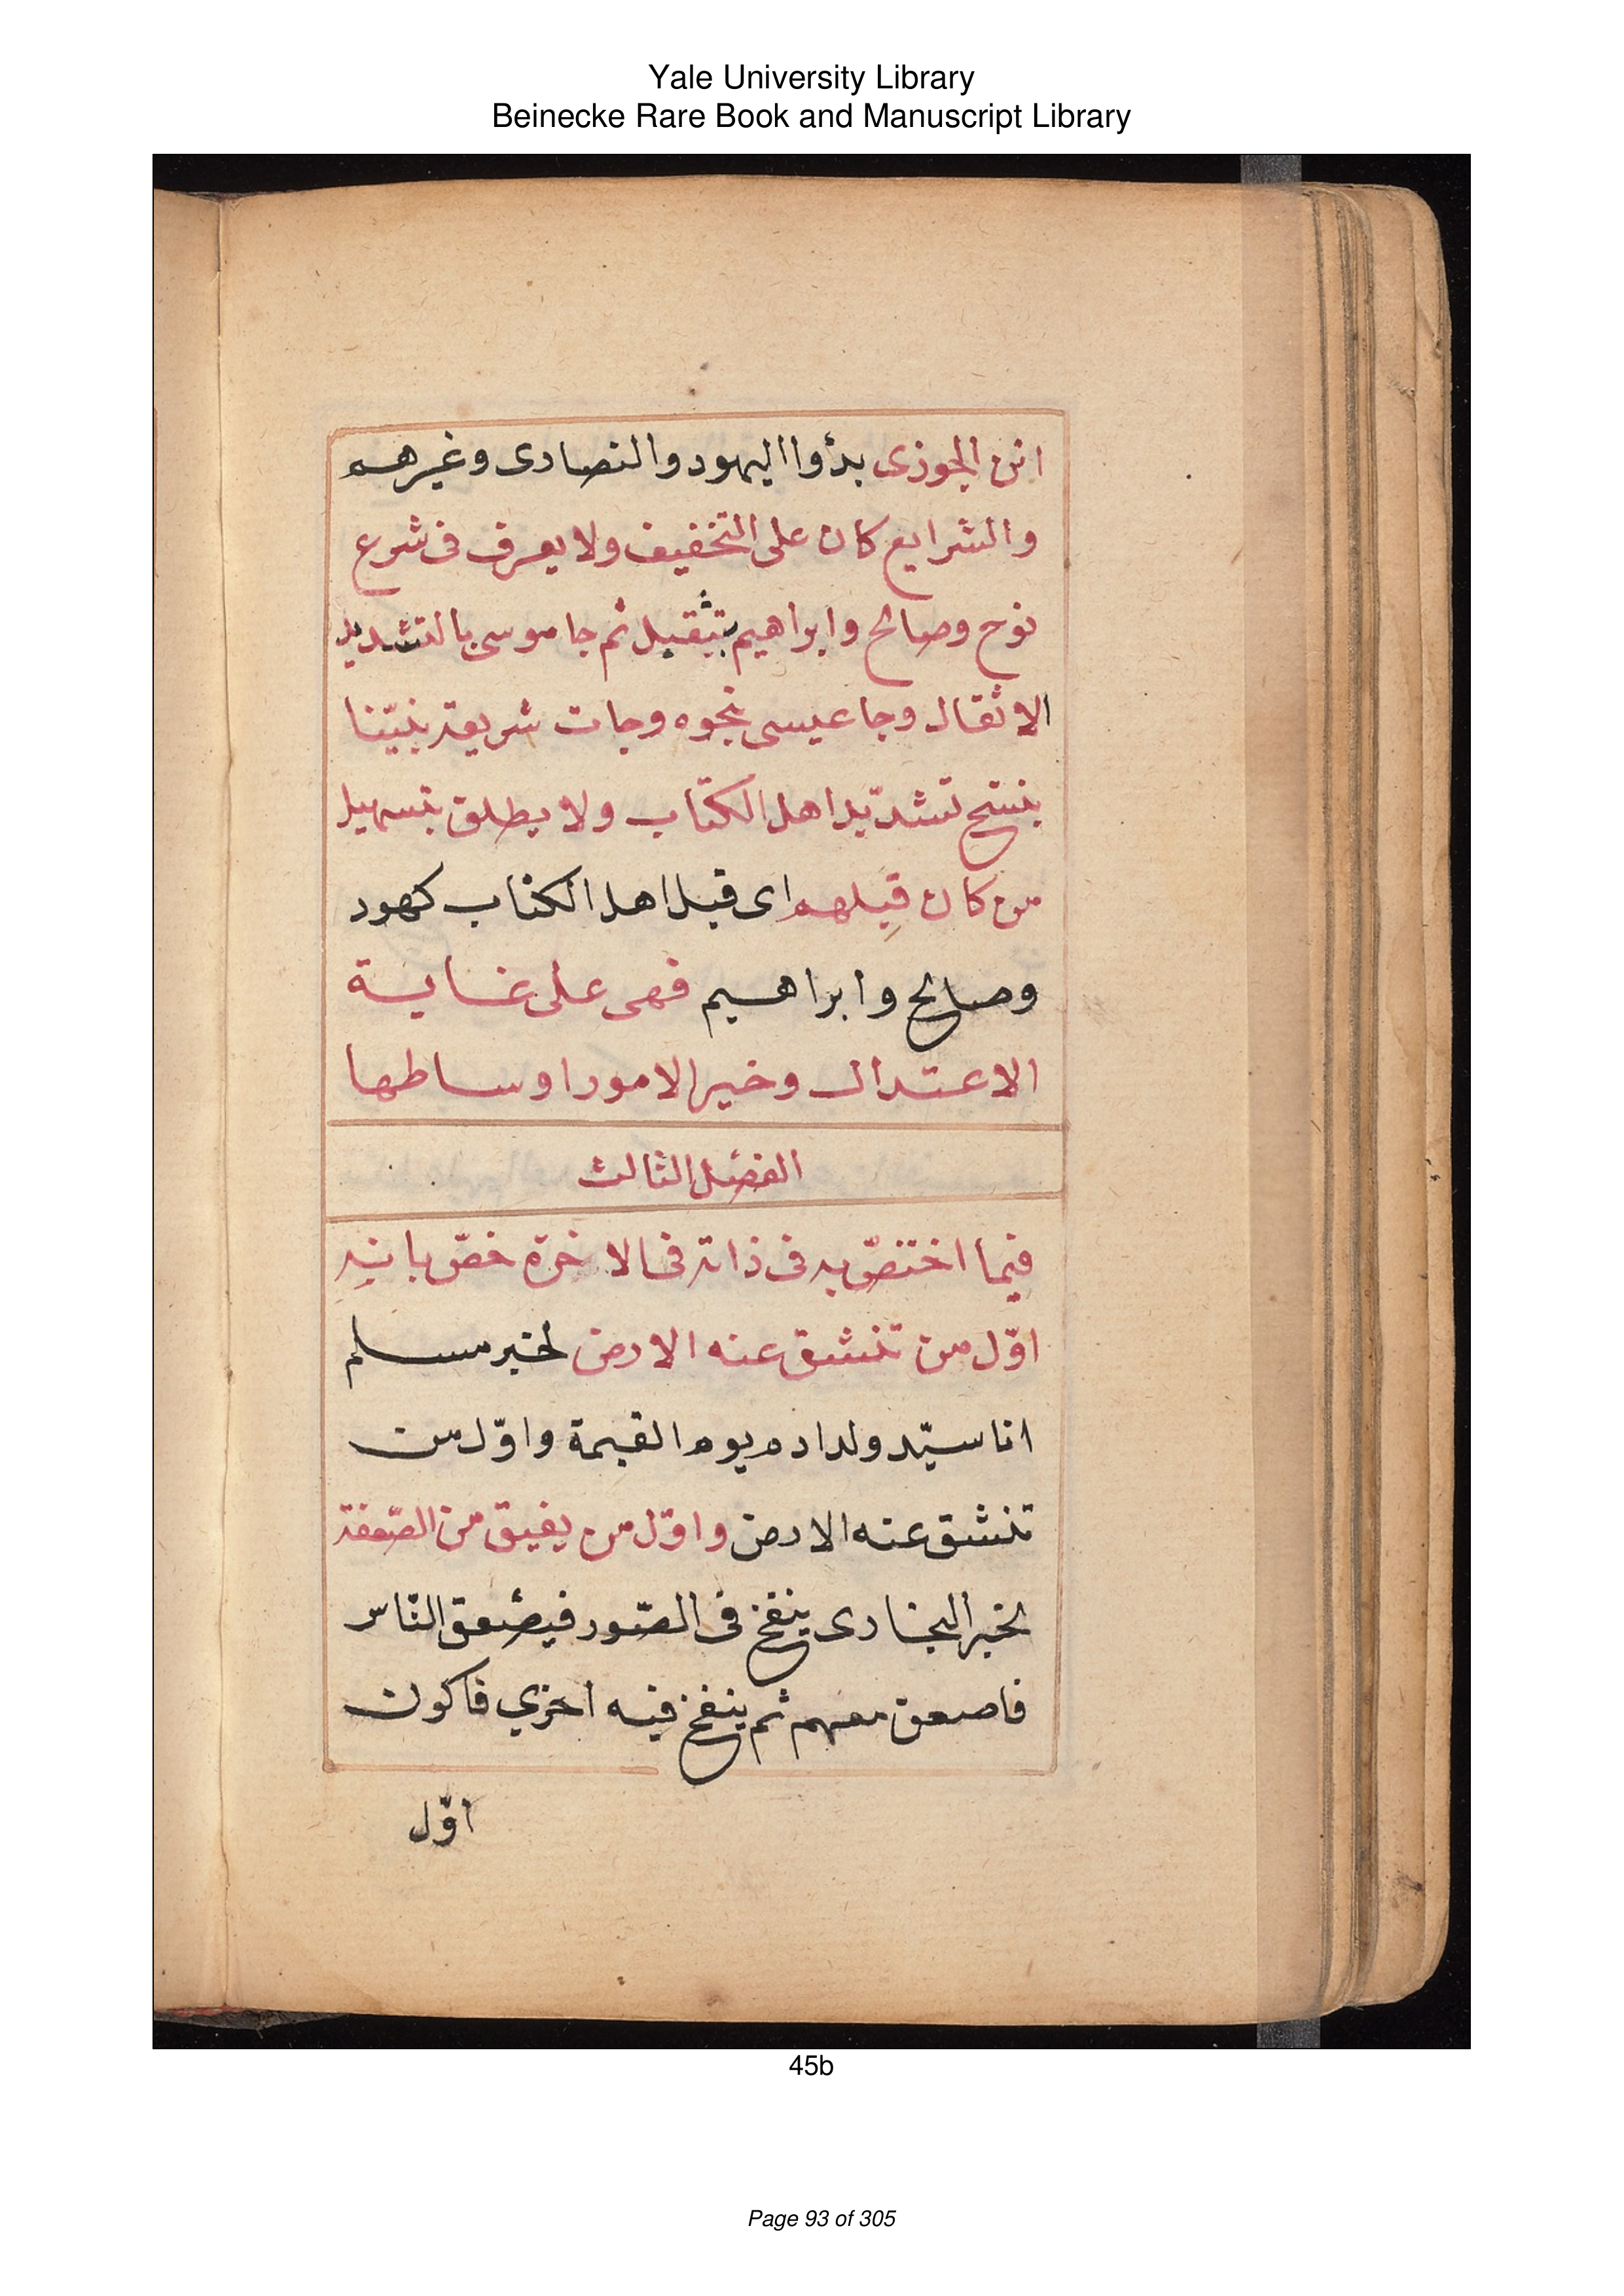 Yale University Library
Beinecke Rare Book and Manuscript Library
ابن الجوزى بدأوا اليهود والنصارى وغيرهم
والشرايع كان على التخفيف ولا يعرف فى شرع
نوح وصالح وابراهيم بتثقيل ثم جا موسى بالتشديد
الاثقال وجا عيسى بنحوه وجات شريعة نبيّنا
بنسخ تشديد اهل الكتاب ولا يطلق بتسهيل
من كان قبلهم اى قبل اهل الكتاب كهود
وصالح وابراهيم فهى على غاية
الاعتدال وخير الامور اوساطها
الفصل الثالث
فيما اختصّ به فى ذاته فى الاخرة خصّ بانه
اوّل من تنشق عنه الارض لخبر مسلم
انا سيّد ولد ادم يوم القيمة واوّل من
تنشق عنه الارض واوّل من يفيق من الصّعقة
لخبر البخارى ينفخ فى الصّور فيصعق النّاس
فاصعق معهم ثم ينفخ فيه اخري فاكون
اوّل
45b
Page 93 of 305